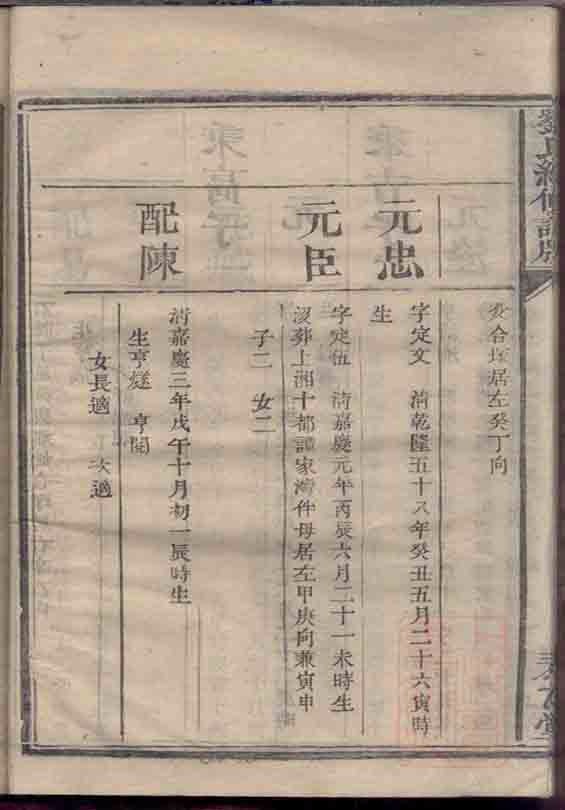 夾合塚居左癸丁向
元忠
字定文 清乾隆五十八年癸丑五月二十六寅時
生
元臣
字定伍 清嘉慶元年丙辰六月二十一未時生
沒葬上湘十都譚家灣伴母居左甲庚向兼寅申
子二 女二
配陳
清嘉慶三年戊午十月初一辰時生
生亨燧 亨開
女長適 次適